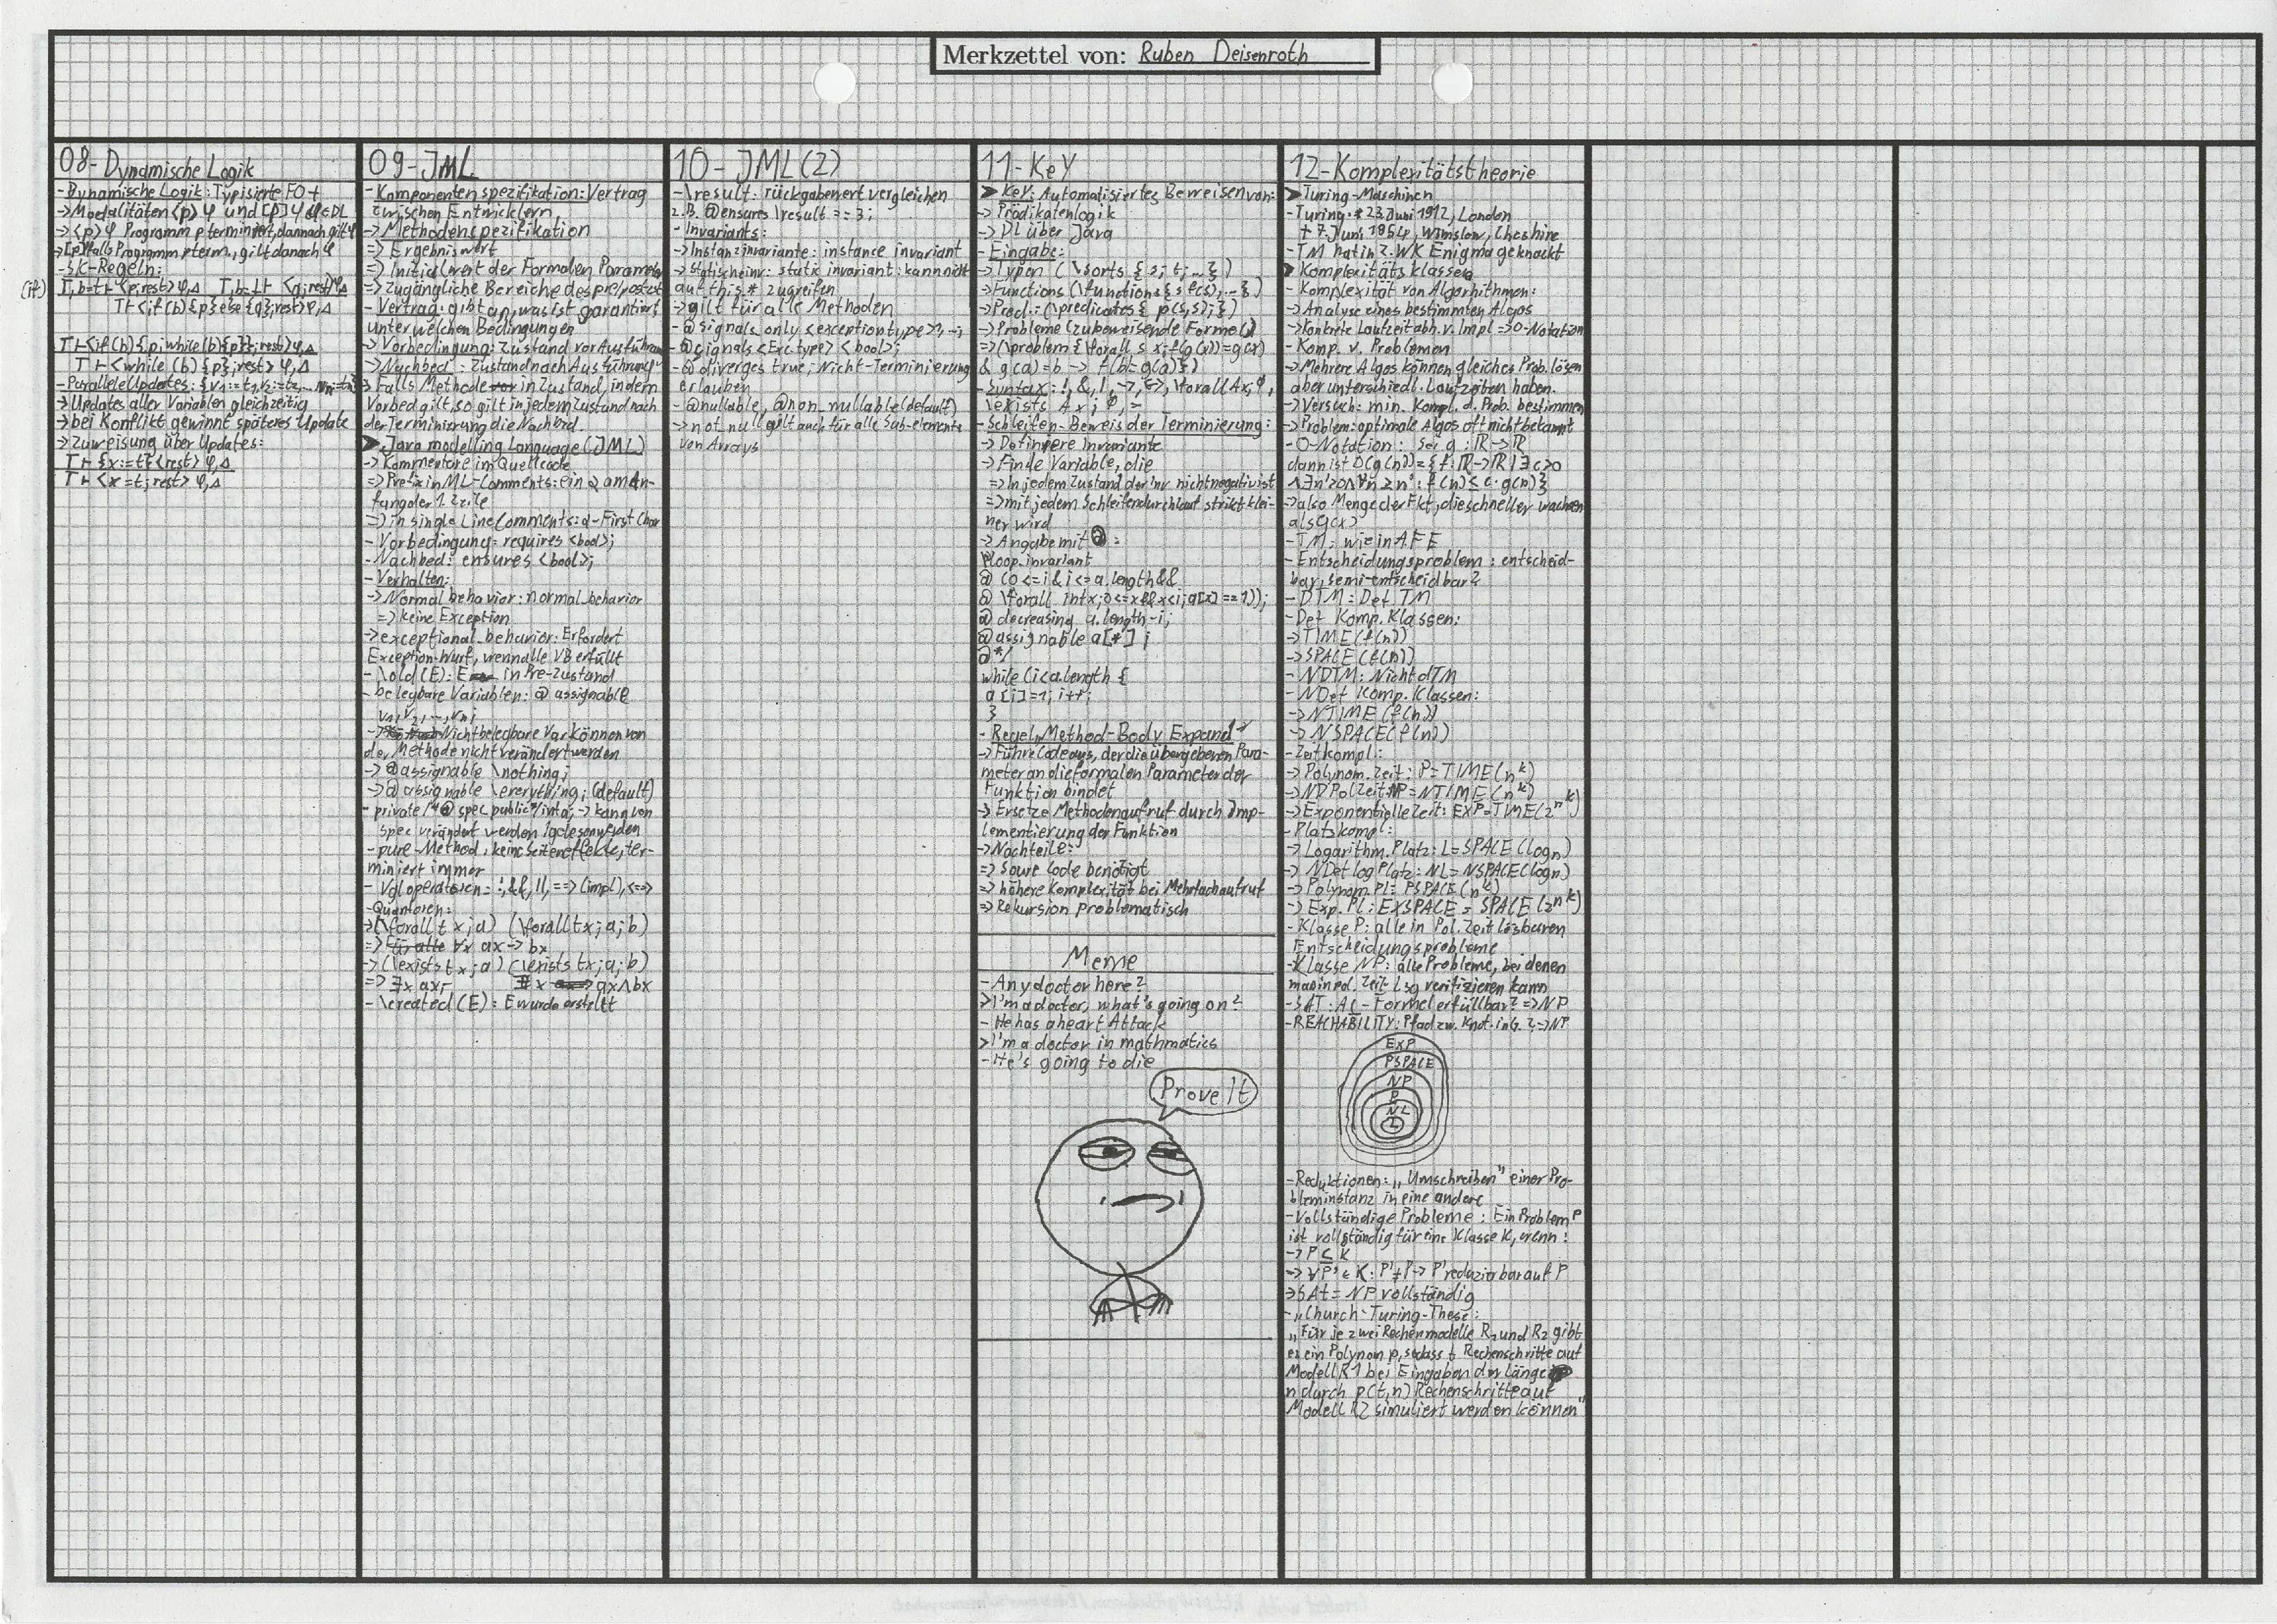 Merkzettel von: Ruben Deisenroth
08- Dynamische Logik
- Dynamische Logik: Typisierte FO+
-> Modalitäten <p>φ und [p]φ φ∈DL
-> <p>φ Programm p terminiert, dannach gilt φ
-> [p] falls Programm p term., gilt danach φ
- SK-Regeln:
(if) Γ, b=t ⊢ <p;rest>φ,Δ Γ,b=⊥ ⊢ <q;rest>φ,Δ
Γ ⊢ <if(b){p}else{q};rest>φ,Δ
Γ ⊢ <if(b){p;while(b){p}};rest>φ,Δ
Γ ⊢ <while (b) {p};rest> φ,Δ
- Parallele Updates: {v1:=t1,v2:=t2,... vn:=tn}
-> Updates aller Variablen gleichzeitig
-> bei Konflikt gewinnt späteres Update
-> Zuweisung über Updates:
Γ ⊢ {x:=t}<rest> φ,Δ
Γ ⊢ <x=t;rest> φ,Δ
09- JML
- Komponentenspezifikation: Vertrag
zwischen Entwicklern
-> Methodenspezifikation
=> Ergebniswert
=> Initialwert der Formalen Parameter
=> zugängliche Bereiche des pre/postzst
- Vertrag: gibt an, was ist garantiert
unter welchen Bedingungen
-> Vorbedingung: Zustand vor Ausführun
-> Nachbed.: Zustand nach Ausführung
-> Falls Methode in Zustand, indem
Vorbed gilt, so gilt in jedem Zustand nach
der Terminierung die Nachbed.
➤ Java modelling Language (JML)
-> Kommentare im Quellcode
=> Prefix in ML-Comments: ein @ am An-
fang der 1. Zeile
=> in single Line Comments: @ - First Char
- Vorbedingung: requires <bool>;
- Nachbed: ensures <bool>;
- Verhalten:
-> Normal behavior: normal_behavior
=> keine Exception
-> exceptional_behavior: Erfordert
Exception-Wurf, wenn alle VB erfüllt
- \old(E): E in Pre-Zustand
- belegbare Variablen: @ assignable
v1, v2, ..., vn;
-> Nicht belegbare Var können von
der Methode nicht verändert werden
-> @ assignable \nothing;
-> @ assignable \everything; (default)
- private /*@ spec_public*/ int a; -> kann von
Spec verändert werden / gelesen werden
- pure-Method: keine Seiteneffekte, ter-
miniert immer
- Vgl operatoren: !,&&,||,==> (impl),<==>
- Quantoren:
-> (\forall t x; a) (\forall t x; a; b)
=> ∀x ax -> bx
-> (\exists t x; a) (\exists t x; a; b)
=> ∃x ax, ∃x ax ∧ bx
- \created(E): E wurde erstellt
10- JML(2)
- \result: rückgabewert vergleichen
z.B. @ensures \result == 3;
- Invariants:
-> Instanzinvariante: instance invariant
-> Statische inv: static invariant: kann nicht
auf this.* zugreifen
-> gilt für alle Methoden
- @ signals_only <exceptiontype>, ...;
- @ signals <Exc.type> <bool>;
- @ diverges true; Nicht-Terminierung
erlauben
- @nullable, @non_nullable (default)
-> not null gilt auch für alle Sub-elemente
von Arrays
11- KeY
➤ KeY: Automatisiertes Beweisen von:
-> Prädikatenlogik
-> DL über Java
- Eingabe:
-> Typen (\sorts { s; t; ... })
-> Functions (\functions { s f(s), ... })
-> Pred.: (\predicates { p(s,s); })
-> Probleme (zu beweisende Formel)
=> (\problem { \forall s x; f(g(x))=g(x)
& g(a)=b -> f(b)=g(a) })
- Syntax: !, &, |, ->, <->, \forall A x; φ,
\exists A x; φ, =
- Schleifen-Beweis der Terminierung:
-> Definiere Invariante
-> Finde Variable, die
=> In jedem Zustand der Inv nicht negativ ist
=> mit jedem Schleifendurchlauf strikt klei-
ner wird
-> Angabe mit @:
@loop_invariant
@ (0 <= i & i <= a.length &&
@ \forall int x; 0 <= x && x < i; a[x] == 1));
@ decreasing a.length-i;
@ assignable a[*];
@*/
while (i<a.length {
a[i]=1; i++;
}
- Regel „Method-Body Expand“
-> Führe Code aus, der die übergebenen Para-
meter an die formalen Parameter der
Funktion bindet
-> Ersetze Methodenaufruf durch Imp-
lementierung der Funktion
-> Nachteile:
=> Source Code benötigt
=> höhere Komplexität bei Mehrfachaufruf
=> Rekursion problematisch
Meme
- Any doctor here?
> I'm a doctor, what's going on?
- He has a heart Attack
> I'm a doctor in mathmatics
- He's going to die
Prove It
12- Komplexitätstheorie
➤ Turing-Maschinen
- Turing: * 23. Juni 1912, London
+ 7. Juni 1954, Wimslow, Cheshire
- TM hat in 2. WK Enigma geknackt
➤ Komplexitätsklassen
- Komplexität von Algorhithmen:
-> Analyse eines bestimmten Algos
-> konkrete Laufzeit abh. v. Impl => O-Notation
- Komp. v. Problemen
-> Mehrere Algos können gleiches Prob. lösen
aber unterschiedl. Laufzeiten haben.
-> Versuch: min. Kompl. d. Prob. bestimmen
-> Problem: optimale Algos oft nicht bekannt
- O-Notation: Sei g: ℝ->ℝ
dann ist O(g(n))={f:ℝ->ℝ | ∃c>0
∧∃n'>0∧∀n≥n': f(n)≤c·g(n)}
-> also Menge der Fkt, die schneller wachsen
als g(x)
- TM: wie in AFE
- Entscheidungsproblem: entscheid-
bar, semi-entscheidbar?
- DTM: Det TM
- Det Komp. Klassen:
-> TIME(f(n))
-> SPACE(f(n))
- NDTM: Nicht dTM
- NDet Komp. Klassen:
-> NTIME(f(n))
-> NSPACE(f(n))
- Zeitkompl.:
-> Polynom. Zeit: P=TIME(n^k)
-> ND Pol Zeit: NP=NTIME(n^k)
-> Exponentielle Zeit: EXP=TIME(2^n^k)
- Platzkompl:
-> Logarithm. Platz: L=SPACE(log n)
-> NDet log Platz: NL=NSPACE(log n)
-> Polynom. Pl= PSPACE(n^k)
-> Exp. Pl.: EXSPACE = SPACE(2^n^k)
- Klasse P: alle in Pol. Zeit lösbaren
Entscheidungsprobleme
- Klasse NP: alle Probleme, bei denen
man in pol. Zeit Lsg verifizieren kann
- SAT: AL-Formel erfüllbar? => NP
- REACHABILITY: Pfad zw. Knot. in G.? => NP
EXP
PSPACE
NP
P
NL
L
- Reduktionen: „Umschreiben“ einer Pro-
bleminstanz in eine andere
- Vollständige Probleme: Ein Problem P
ist vollständig für eine Klasse K, wenn:
-> P ⊆ K
-> ∀P' ∈ K: P'≠P -> P' reduzierbar auf P
-> SAt = NP vollständig
- „Church-Turing-These:
„Für je zwei Rechenmodelle R1 und R2 gibt
es ein Polynom p, sodass t Rechenschritte auf
Modell R1 bei Eingaben der Länge
n durch p(t,n) Rechenschritte auf
Modell R2 simuliert werden können“